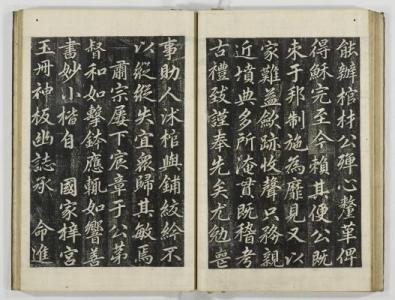 能辦棺材公殫心釐革俾
得穌完至今賴其便公既
末于邦制施為靡見又以
家難益斂跡收聲只務親
近墳典多所淹貫既稽考
古禮致謹奉先矣尤勉喪
事助人冰棺與鋪絞紟不
以縱縱失宜衆歸其敏焉
肅宗屢下宸章于公第
督和如擊鉢應輒如響善
書妙小楷自 國家梓宮
玉冊神板幽誌承 命進